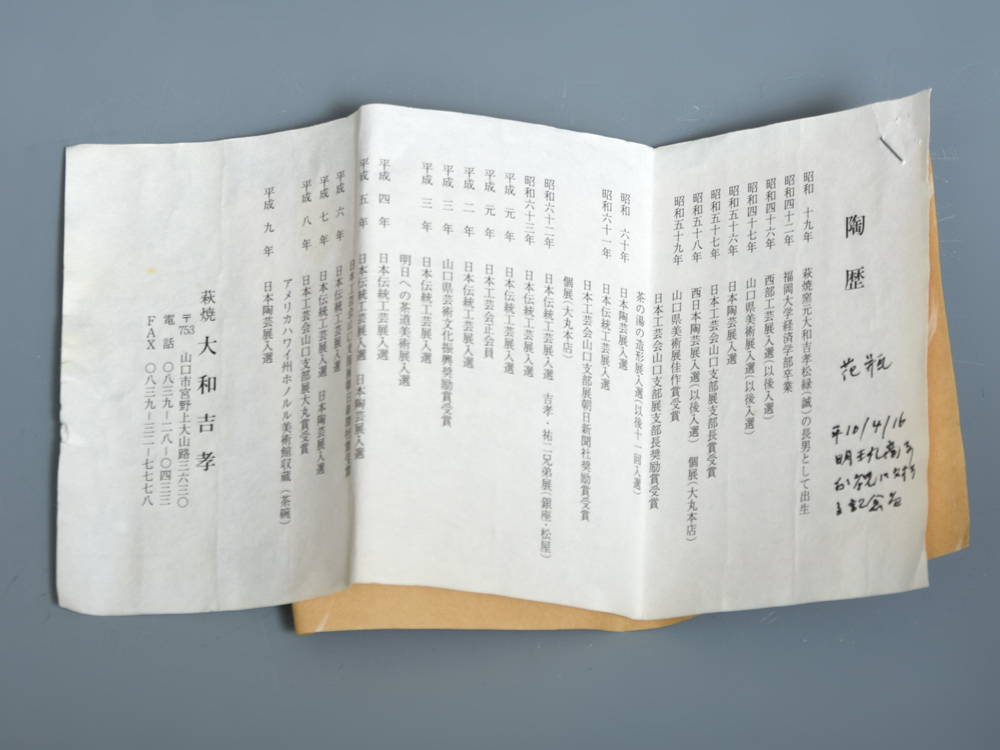 陶歴
花瓶
平10/4/16
昭和 十九年 萩焼窯元大和吉孝松緑(誠)の長男として出生
昭和四十二年 福岡大学経済学部卒業
昭和四十六年 西部工芸展入選(以後入選)
昭和四十七年 山口県美術展入選(以後入選)
昭和五十六年 日本陶芸展入選
昭和五十七年 日本工芸会山口支部展支部長賞受賞
昭和五十八年 西日本陶芸展入選(以後入選) 個展(大丸本店)
昭和五十九年 山口県美術展佳作賞受賞
日本工芸会山口支部展支部長奨励賞受賞
昭和 六十年 茶の湯の造形展入選(以後十一回入選)
日本陶芸展入選
昭和六十一年 日本伝統工芸展入選
日本工芸会山口支部展朝日新聞社奨励賞受賞
個展(大丸本店)
昭和六十二年 日本伝統工芸展入選 吉孝・祐二兄弟展(銀座・松屋)
昭和六十三年 日本伝統工芸展入選
平成 元 年 日本伝統工芸展入選
平成 元 年 日本工芸会正会員
平成 二 年 日本伝統工芸展入選
平成 三 年 山口県芸術文化振興奨励賞受賞
平成 三 年 日本伝統工芸展入選
明日への茶道美術展入選
平成 四 年 日本伝統工芸展入選
平成 五 年 日本伝統工芸展入選 日本陶芸展入選
平成 六 年 日本伝統工芸展入選
平成 七 年 日本伝統工芸展入選 日本陶芸展入選
平成 八 年 日本工芸会山口支部展大丸賞受賞
アメリカハワイ州ホノルル美術館収蔵(茶碗)
平成 九 年 日本陶芸展入選
萩焼 大和吉孝
〒753 山口市宮野上大山路三六三〇
電話 〇八三九-二八-〇四三三
FAX 〇八三九-三二-七七七八